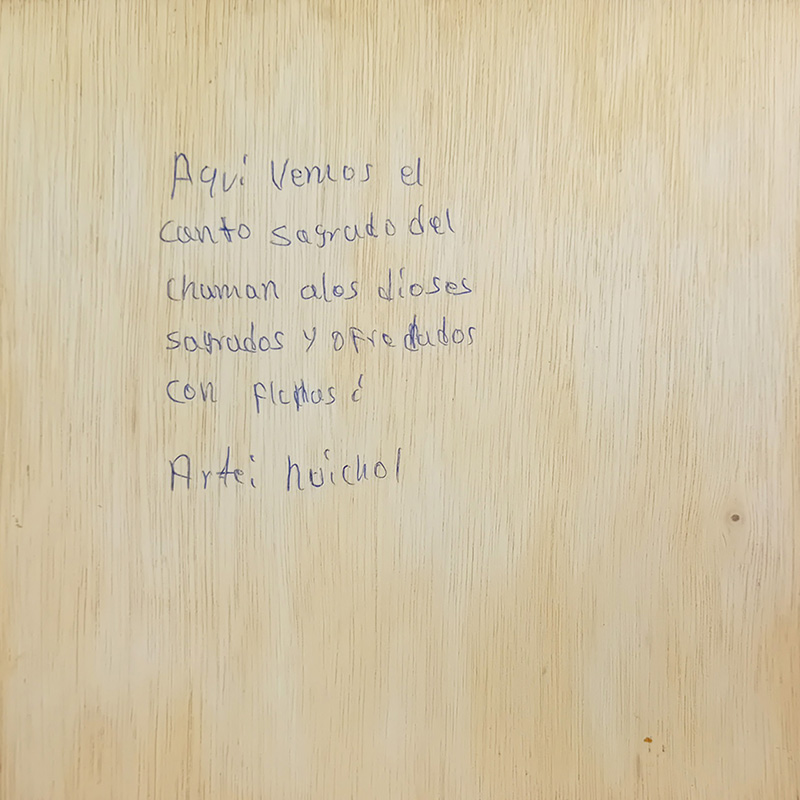 Aqui Vemos el
canto sagrado del
chaman alos dioses
sagrados y ofrendados
con flechas
Arte: huichol